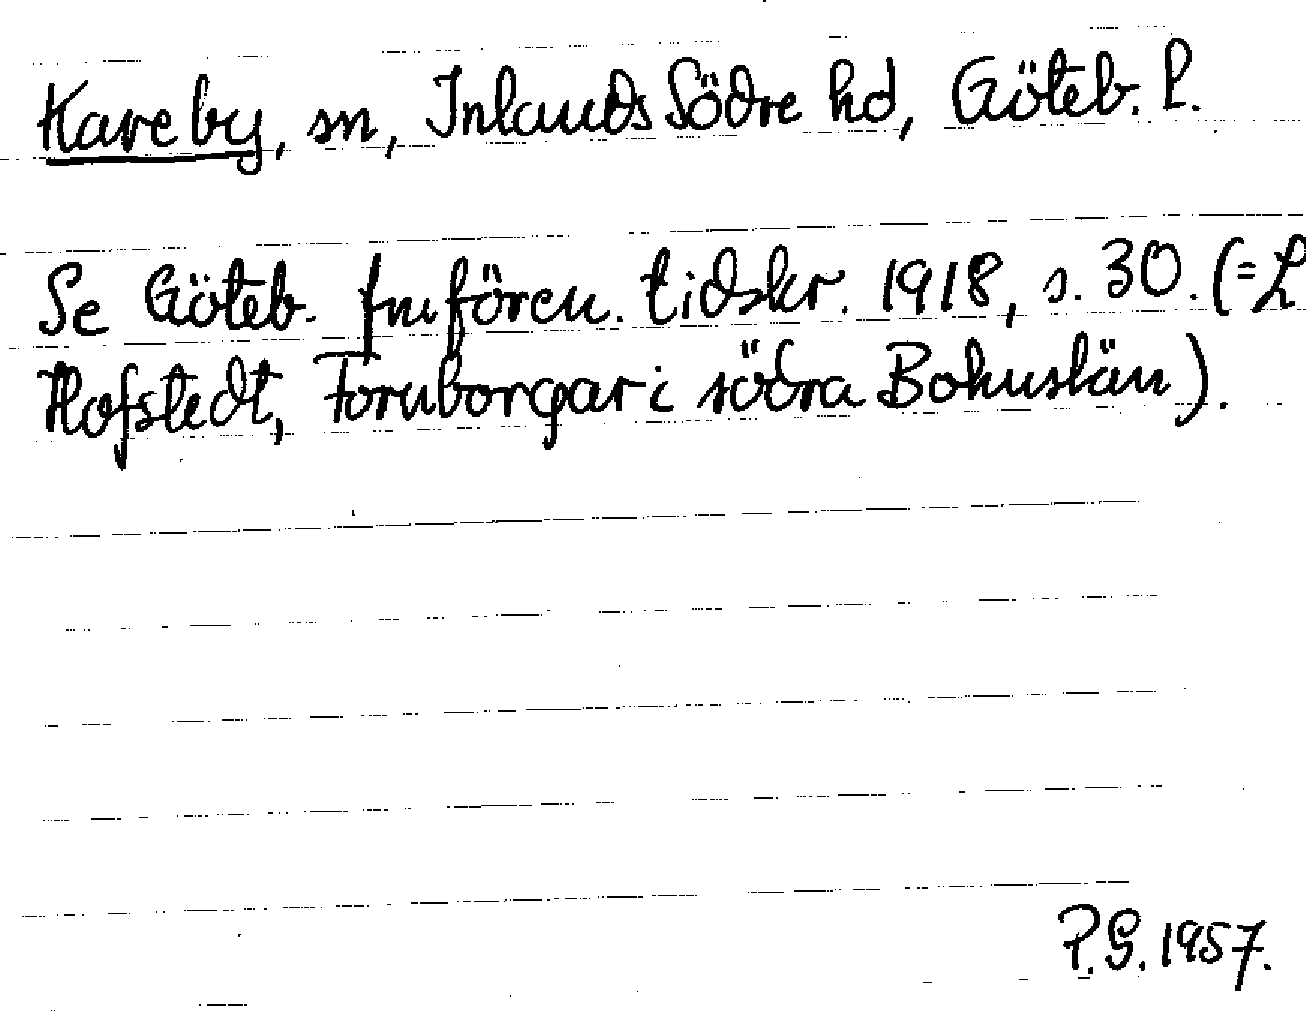 Kareby, sn, Inlands Södre hd, Göteb. l.
Se Göteb. fmfören. tidskr. 1918, s. 30. (= L
Hofstedt, Fornborgar i södra Bohuslän).
P.G. 1957.